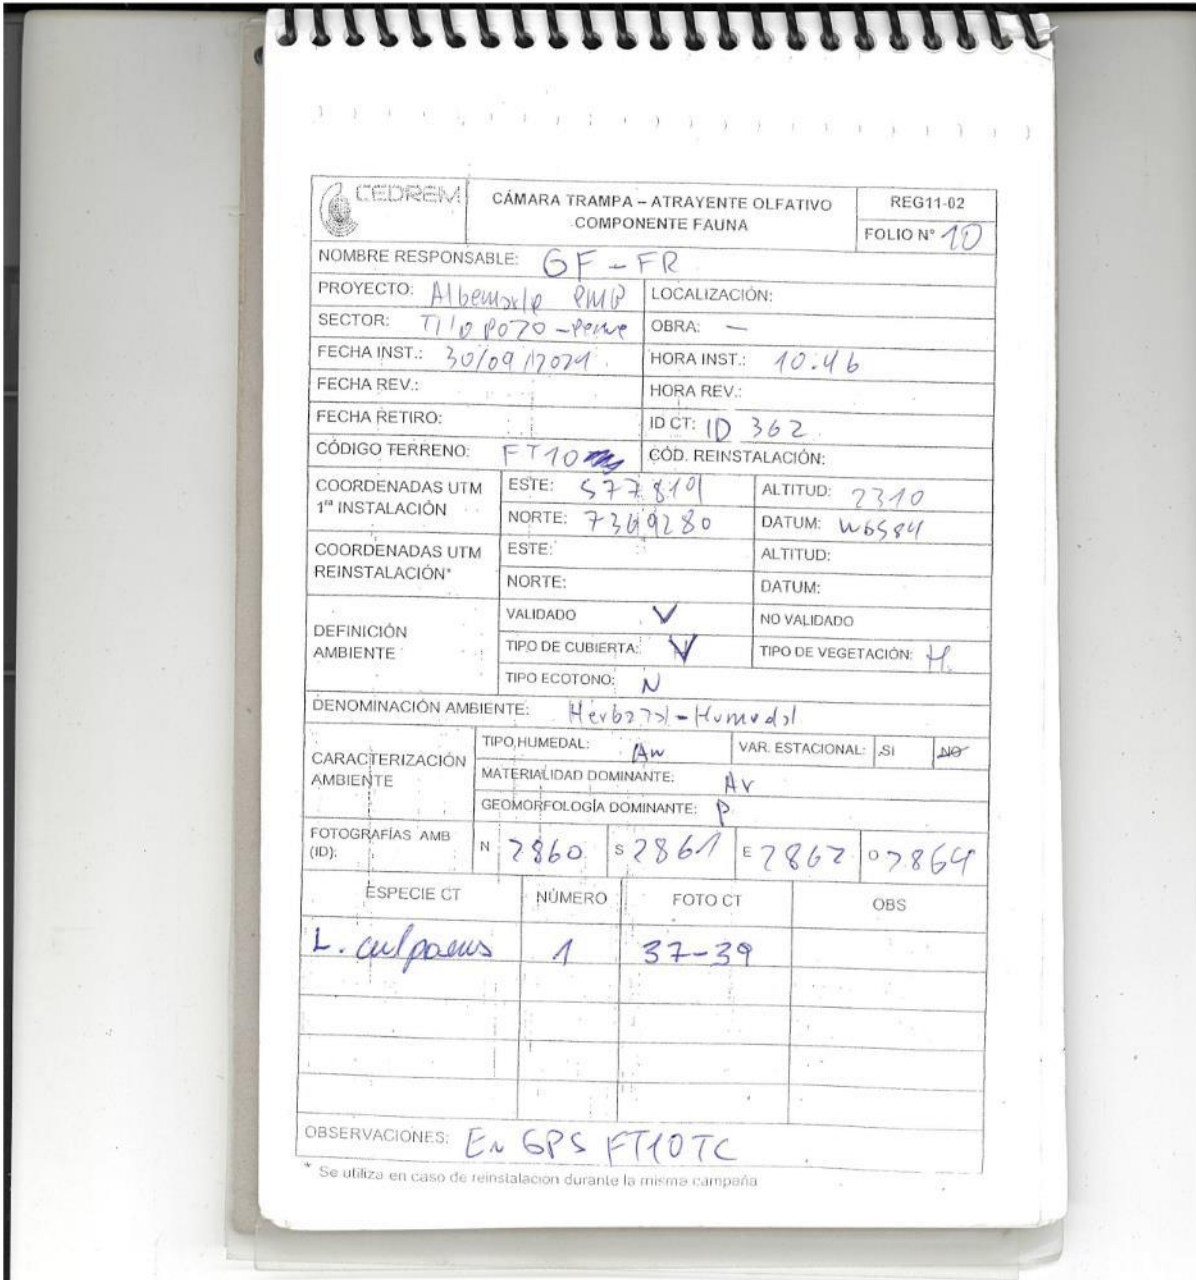 CEDREM
CÁMARA TRAMPA – ATRAYENTE OLFATIVO
COMPONENTE FAUNA
REG11-02
FOLIO N° 10
NOMBRE RESPONSABLE: GF - FR
PROYECTO: Albemarle PMB
LOCALIZACIÓN:
SECTOR: Tilopozo -
OBRA: —
FECHA INST.: 30/09/2021.
HORA INST.: 10:46
FECHA REV.:
HORA REV.:
FECHA RETIRO:
ID CT: ID 362
CÓDIGO TERRENO: FT10
CÓD. REINSTALACIÓN:
COORDENADAS UTM
1ra INSTALACIÓN
ESTE:
ALTITUD: 2310
NORTE: 7369280
DATUM: WGS84
COORDENADAS UTM
REINSTALACIÓN*
ESTE:
ALTITUD:
NORTE:
DATUM:
DEFINICIÓN
AMBIENTE
VALIDADO V
NO VALIDADO
TIPO DE CUBIERTA: V
TIPO DE VEGETACIÓN: H.
TIPO ECOTONO: N
DENOMINACIÓN AMBIENTE: Herbazal - Humedal
CARACTERIZACIÓN
AMBIENTE
TIPO HUMEDAL:
VAR. ESTACIONAL: SI NO
MATERIALIDAD DOMINANTE: Ar
GEOMORFOLOGÍA DOMINANTE: P
FOTOGRAFÍAS AMB
(ID):
N 2860 S 2861 E 2862 O 2864
ESPECIE CT NÚMERO FOTO CT OBS
L. culpaeus 1 37-39
OBSERVACIONES: En GPS FT10TC
* Se utiliza en caso de reinstalacion durante la misma campaña